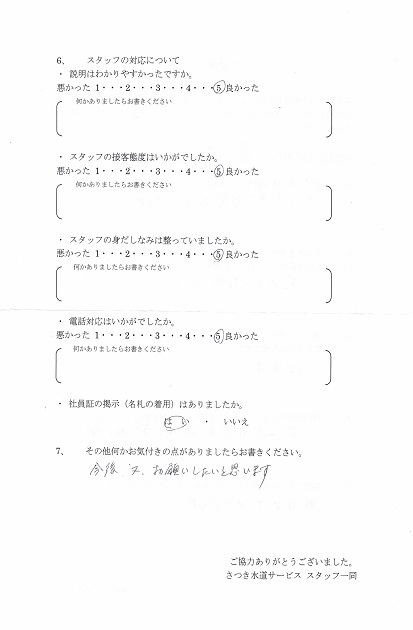 6、 スタッフの対応について
・ 説明はわかりやすかったですか。
悪かった 1・・・2・・・3・・・4・・・5 良かった
何かありましたらお書きください
・ スタッフの接客態度はいかがでしたか。
悪かった 1・・・2・・・3・・・4・・・5 良かった
何かありましたらお書きください
・ スタッフの身だしなみは整っていましたか。
悪かった 1・・・2・・・3・・・4・・・5 良かった
何かありましたらお書きください
・ 電話対応はいかがでしたか。
悪かった 1・・・2・・・3・・・4・・・5 良かった
何かありましたらお書きください
・ 社員証の掲示（名札の着用）はありましたか。
はい ・ いいえ
7、 その他何かお気付きの点がありましたらお書きください。
今後 又、お願いしたいと思います
ご協力ありがとうございました。
さつき水道サービス スタッフ一同